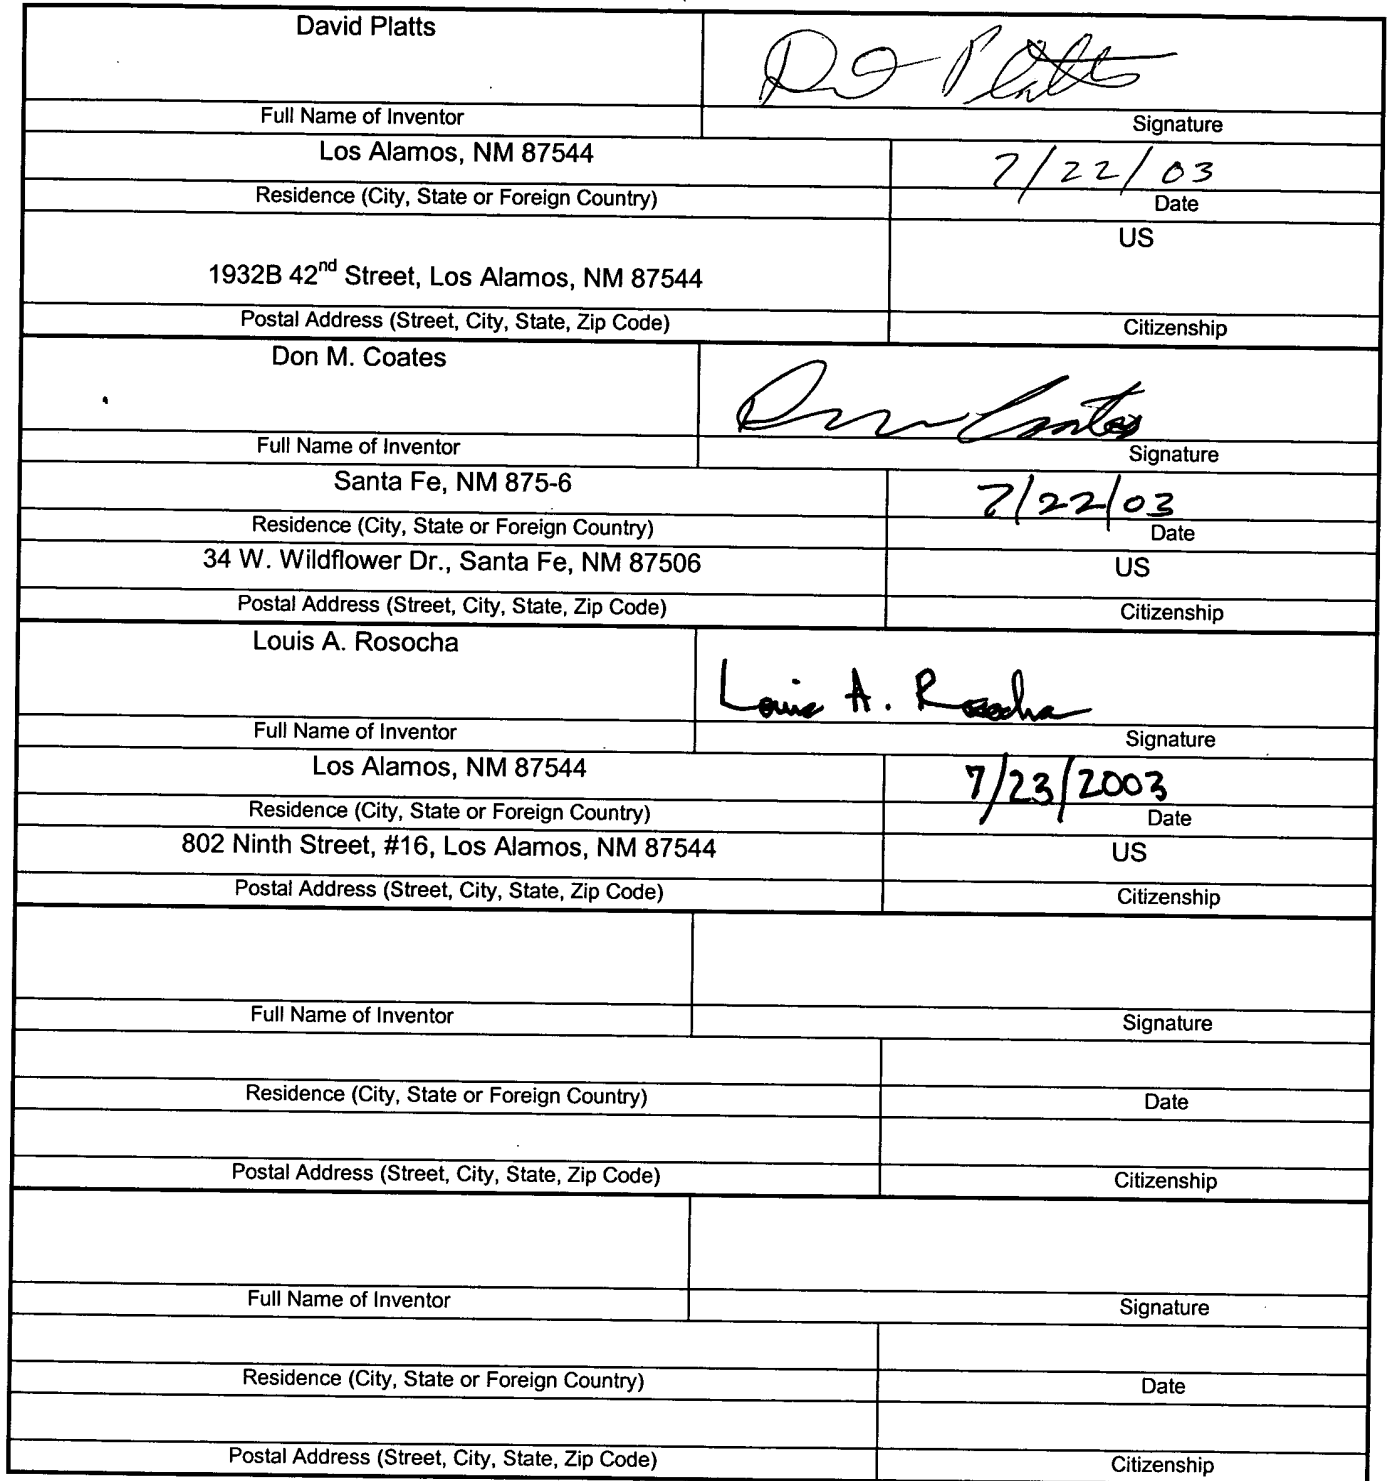 David Platts
D Platts
Full Name of Inventor
Signature
Los Alamos, NM 87544
7/22/03
Residence (City, State or Foreign Country)
Date
US
1932B 42nd Street, Los Alamos, NM 87544
Postal Address (Street, City, State, Zip Code)
Citizenship
Don M. Coates
Don Coates
Full Name of Inventor
Signature
Santa Fe, NM 875-6
7/22/03
Residence (City, State or Foreign Country)
Date
34 W. Wildflower Dr., Santa Fe, NM 87506
US
Postal Address (Street, City, State, Zip Code)
Citizenship
Louis A. Rosocha
Louis A. Rosocha
Full Name of Inventor
Signature
Los Alamos, NM 87544
7/23/2003
Residence (City, State or Foreign Country)
Date
802 Ninth Street, #16, Los Alamos, NM 87544
US
Postal Address (Street, City, State, Zip Code)
Citizenship
Full Name of Inventor
Signature
Residence (City, State or Foreign Country)
Date
Postal Address (Street, City, State, Zip Code)
Citizenship
Full Name of Inventor
Signature
Residence (City, State or Foreign Country)
Date
Postal Address (Street, City, State, Zip Code)
Citizenship